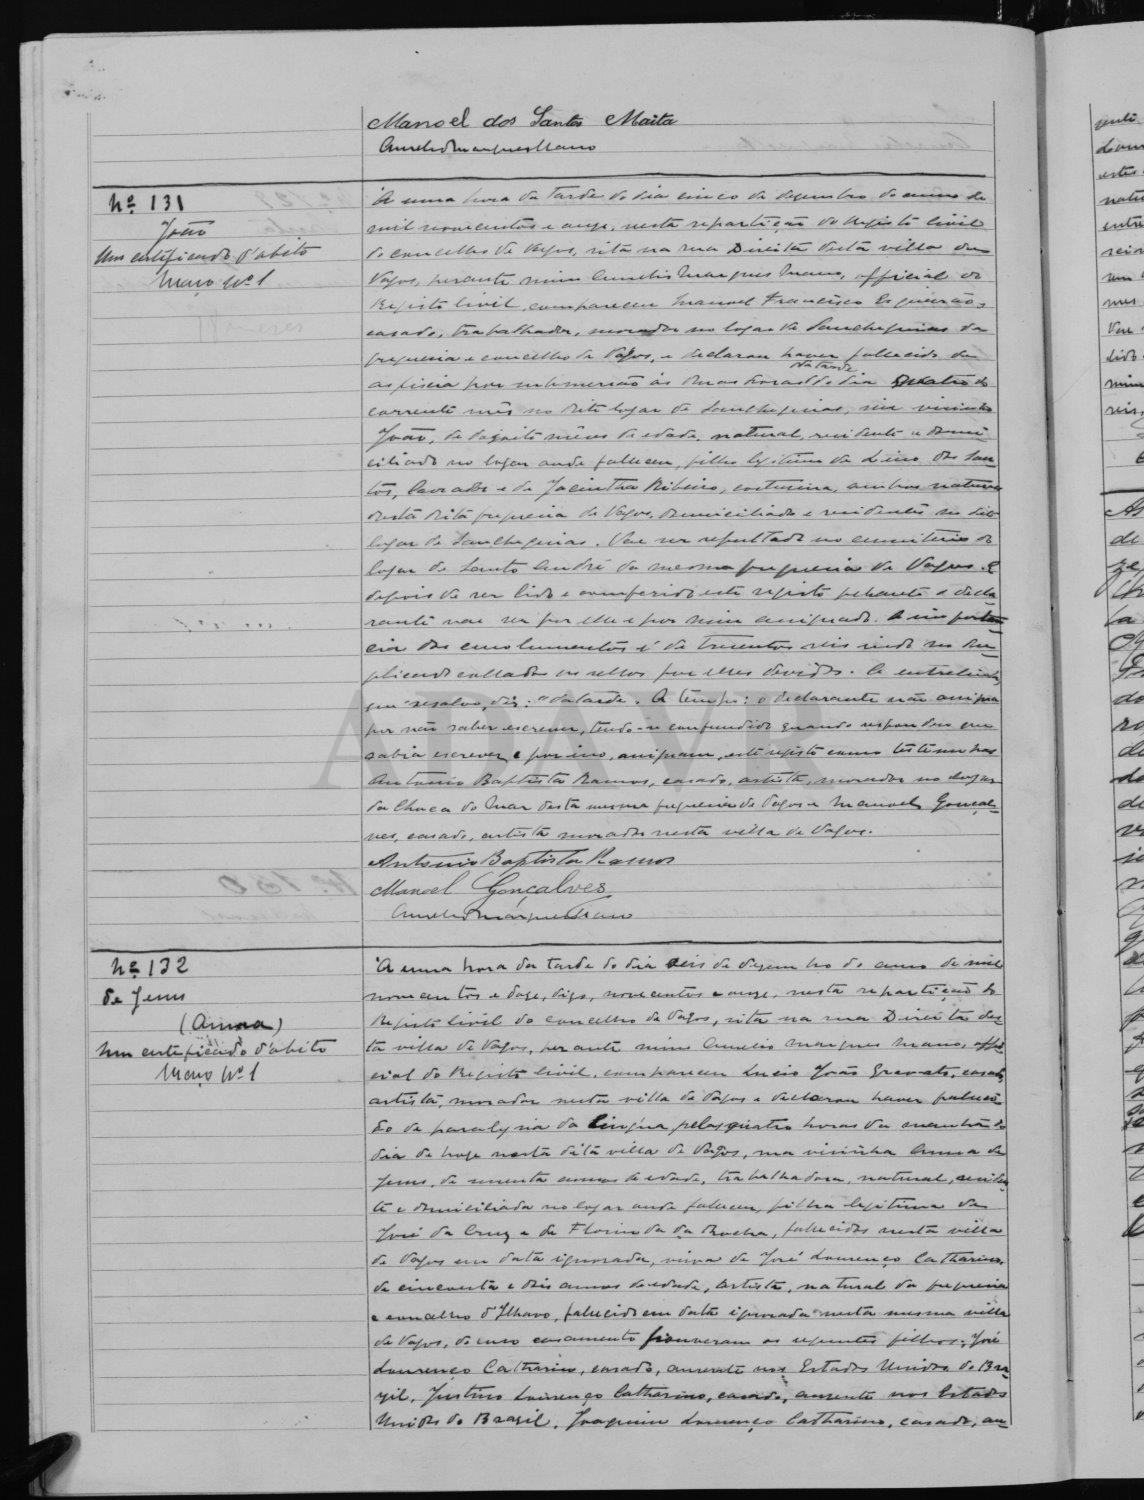 Manoel dos Santos Maita
Aurelio Marques Mano
Nº 131
João
Um certificado d'obito
Maço Nº 1
A uma hora da tarde do dia cinco de dezembro do anno de
mil novecentos e onze, nesta repartição do Registo Civil
do concelho de Vagos, sita na rua Direita desta villa de
Vagos, perante mim Aurelio Marques Mano, official do
Registo Civil, compareceu Manuel Francisco Esgueirão,
casado, trabalhador, morador no logar de Sanchequias da
freguesia e concelho de Vagos, e declarou haver fallecido de
da tarde
asfixia por submersão ás duas horas do dia quatro do
corrente mês no dito logar de Sanchequias, seu visinho
João, de dezoito mêses de edade, natural, residente e domi
ciliado no logar onde falleceu, filho legitimo de Lino dos San
tos, lavrador e de Jacintha Ribeiro, costureira, ambos naturaes
desta dita freguesia de Vagos, domiciliados e residentes no dito
logar de Sanchequias. Vae ser sepultado no cemiterio do
logar de Santo André da mesma freguesia de Vagos. E
depois de ser lido e conferido este registo perante o decla
rante vae ser por elle e por mim assignado. A importan
cia dos emolumentos é de trezentos reis indo no du
plicado collados os sellos por elles devidos. A entrelinha
que resalvo, diz: "da tarde. Em tempo: o declarante não assigna
por não saber escrever, tendo-se confundido quando respondeu que
sabia escrever e por isso, assignam este registo como testemunhas
Antonio Baptista Ramos, casado, artista, morador no logar
da Choca do Mar desta mesma freguesia de Vagos e Manoel Gonçal
ves, casado, artista morador nesta villa de Vagos.
Antonio Baptista Ramos
Manoel Gonçalves
Aurelio Marques Mano
Nº 132
de Jesus
(Anna)
Um certificado d'obito
Maço Nº 1
A uma hora da tarde do dia seis de dezembro do anno de mil
novecentos e doze, digo, novecentos e onze, nesta repartição do
Registo Civil do concelho de Vagos, sita na rua Direita des
ta villa de Vagos, perante mim Aurelio Marques Mano, offi
cial do Registo Civil, compareceu Lucio João Gravato, casado,
artista, morador nesta villa de Vagos e declarou haver falleci
do de paralysia da lingua pelas quatro horas da manhã do
dia de hoje nesta dita villa de Vagos, sua visinha Anna de
Jesus, de annos de edade, trabalhadora, natural, residen
te e domiciliada no logar onde falleceu, filha legitima de
José da Cruz e de Florinda da Rocha, fallecidos nesta villa
de Vagos em data ignorada, viuva de José Lourenço Catharino,
de cincoenta e dois annos de edade, artista, natural da freguesia
e concelho d'Ilhavo, fallecido em data ignorada nesta mesma villa
de Vagos, de cujo casamento houveram os seguintes filhos: José
Lourenço Catharino, casado, ausente nos Estados Unidos do Bra
zil, Justino Lourenço Catharino, casado, ausente nos Estados
Unidos do Brazil, Joaquim Lourenço Catharino, casado, au